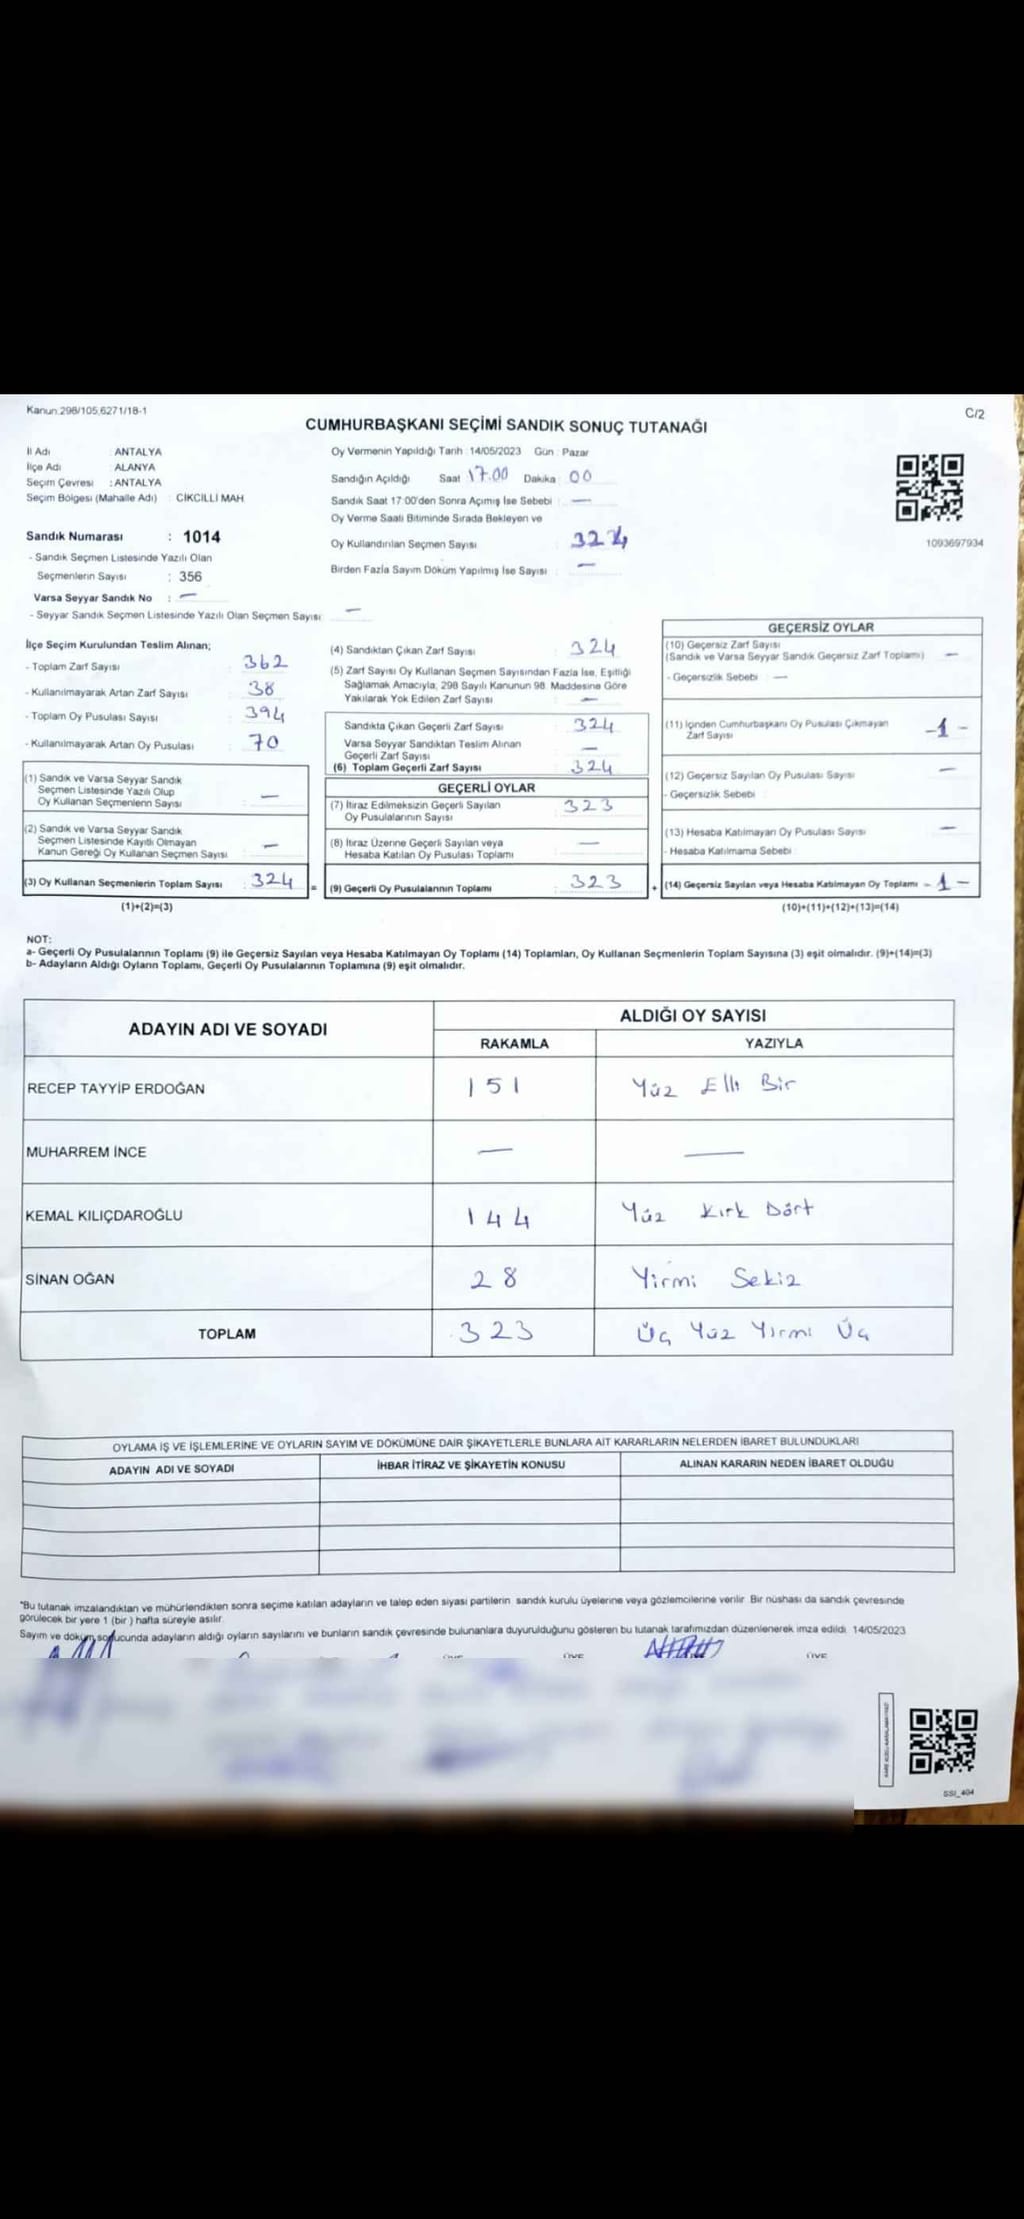 Kanun.298/105,6271/18-1
C/2
CUMHURBAŞKANI SEÇİMİ SANDIK SONUÇ TUTANAĞI
İl Adı : ANTALYA
İlçe Adı : ALANYA
Seçim Çevresi : ANTALYA
Seçim Bölgesi (Mahalle Adı) : CİKCİLLİ MAH.
Sandık Numarası : 1014
- Sandık Seçmen Listesinde Yazılı Olan
Seçmenlerin Sayısı : 356
Varsa Seyyar Sandık No : —
- Seyyar Sandık Seçmen Listesinde Yazılı Olan Seçmen Sayısı : —
Oy Vermenin Yapıldığı Tarih : 14/05/2023 Gün : Pazar
Sandığın Açıldığı Saat 17.00 Dakika : 00
Sandık Saat 17:00'den Sonra Açımış İse Sebebi : —
Oy Verme Saati Bitiminde Sırada Bekleyen ve
Oy Kullandırılan Seçmen Sayısı : 324
Birden Fazla Sayım Döküm Yapılmış İse Sayısı : —
1093697934
İlçe Seçim Kurulundan Teslim Alınan;
- Toplam Zarf Sayısı : 362
- Kullanılmayarak Artan Zarf Sayısı : 38
- Toplam Oy Pusulası Sayısı : 394
- Kullanılmayarak Artan Oy Pusulası : 70
(1) Sandık ve Varsa Seyyar Sandık
Seçmen Listesinde Yazılı Olup
Oy Kullanan Seçmenlerin Sayısı : —
(2) Sandık ve Varsa Seyyar Sandık
Seçmen Listesinde Kayıtlı Olmayan
Kanun Gereği Oy Kullanan Seçmen Sayısı : —
(3) Oy Kullanan Seçmenlerin Toplam Sayısı : 324
(1)+(2)=(3)
(4) Sandıktan Çıkan Zarf Sayısı : 324
(5) Zarf Sayısı Oy Kullanan Seçmen Sayısından Fazla İse, Eşitliği
Sağlamak Amacıyla, 298 Sayılı Kanunun 98. Maddesine Göre
Yakılarak Yok Edilen Zarf Sayısı : —
Sandıkta Çıkan Geçerli Zarf Sayısı : 324
Varsa Seyyar Sandıktan Teslim Alınan
Geçerli Zarf Sayısı : —
(6) Toplam Geçerli Zarf Sayısı : 324
GEÇERLİ OYLAR
(7) İtiraz Edilmeksizin Geçerli Sayılan
Oy Pusulalarının Sayısı : 323
(8) İtiraz Üzerine Geçerli Sayılan veya
Hesaba Katılan Oy Pusulası Toplamı : —
= (9) Geçerli Oy Pusulalarının Toplamı : 323
GEÇERSİZ OYLAR
(10) Geçersiz Zarf Sayısı
(Sandık ve Varsa Seyyar Sandık Geçersiz Zarf Toplamı) : —
- Geçersizlik Sebebi : —
(11) İçinden Cumhurbaşkanı Oy Pusulası Çıkmayan
Zarf Sayısı : -1-
(12) Geçersiz Sayılan Oy Pusulası Sayısı : —
- Geçersizlik Sebebi :
(13) Hesaba Katılmayan Oy Pusulası Sayısı : —
- Hesaba Katılmama Sebebi :
+ (14) Geçersiz Sayılan veya Hesaba Katılmayan Oy Toplamı -1-
(10)+(11)+(12)+(13)=(14)
NOT:
a- Geçerli Oy Pusulalarının Toplamı (9) ile Geçersiz Sayılan veya Hesaba Katılmayan Oy Toplamı (14) Toplamları, Oy Kullanan Seçmenlerin Toplam Sayısına (3) eşit olmalıdır. (9)+(14)=(3)
b- Adayların Aldığı Oyların Toplamı, Geçerli Oy Pusulalarının Toplamına (9) eşit olmalıdır.
ADAYIN ADI VE SOYADI ALDIĞI OY SAYISI
RAKAMLA YAZIYLA
RECEP TAYYİP ERDOĞAN 151 Yüz Elli Bir
MUHARREM İNCE — —
KEMAL KILIÇDAROĞLU 144 Yüz Kırk Dört
SİNAN OĞAN 28 Yirmi Sekiz
TOPLAM 323 Üç Yüz Yirmi Üç
OYLAMA İŞ VE İŞLEMLERİNE VE OYLARIN SAYIM VE DÖKÜMÜNE DAİR ŞİKAYETLERLE BUNLARA AİT KARARLARIN NELERDEN İBARET BULUNDUKLARI
ADAYIN ADI VE SOYADI İHBAR İTİRAZ VE ŞİKAYETİN KONUSU ALINAN KARARIN NEDEN İBARET OLDUĞU
*Bu tutanak imzalandıktan ve mühürlendikten sonra seçime katılan adayların ve talep eden siyasi partilerin sandık kurulu üyelerine veya gözlemcilerine verilir. Bir nüshası da sandık çevresinde
görülecek bir yere 1 (bir ) hafta süreyle asılır.
Sayım ve döküm sonucunda adayların aldığı oyların sayılarını ve bunların sandık çevresinde bulunanlara duyurulduğunu gösteren bu tutanak tarafımızdan düzenlenerek imza edildi. 14/05/2023
ÜYE ÜYE ÜYE
SSI_404